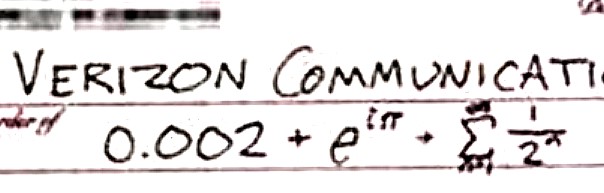 VERIZON COMMUNICATI
order of 0.002 + e^{iπ} + ∑_{n=1}^{∞} 1/2^n